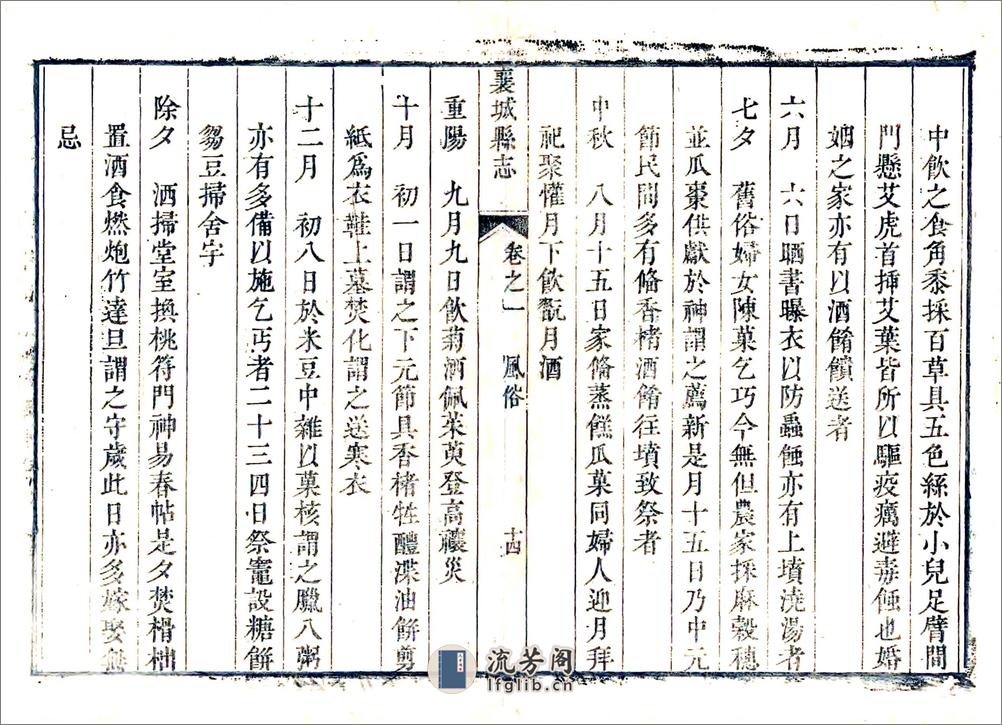 中飲之食角黍採百草具五色絲於小兒足臂間
門懸艾虎首揷艾葉皆所以驅疫癘避毒蝕也婚
姻之家亦有以酒餚饋送者
六月　六日晒書曝衣以防蟲蝕亦有上墳澆湯者
七夕　舊俗婦女陳菓乞巧今無但農家採麻穀穗
並瓜棗供獻於神謂之薦新是月十五日乃中元
節民間多有偹香楮酒餚往墳致祭者
中秋　八月十五日家偹蒸餻瓜菓同婦人迎月拜
祀聚懽月下飲翫月酒
襄城縣志
卷之一　風俗　十四
重陽　九月九日飲菊酒佩茱萸登高禳災
十月　初一日謂之下元節具香楮牲醴渫油餅剪
紙爲衣鞋上墓焚化謂之送寒衣
十二月　初八日於米豆中雜以菓核謂之臘八粥
亦有多備以施乞丐者二十三四日祭竈設糖餅
芻豆掃舍宇
除夕　洒掃堂室換桃符門神易春帖是夕焚榾柮
置酒食燃炮竹達旦謂之守歲此日亦多嫁娶無
忌
流芳阁
lfglib.cn